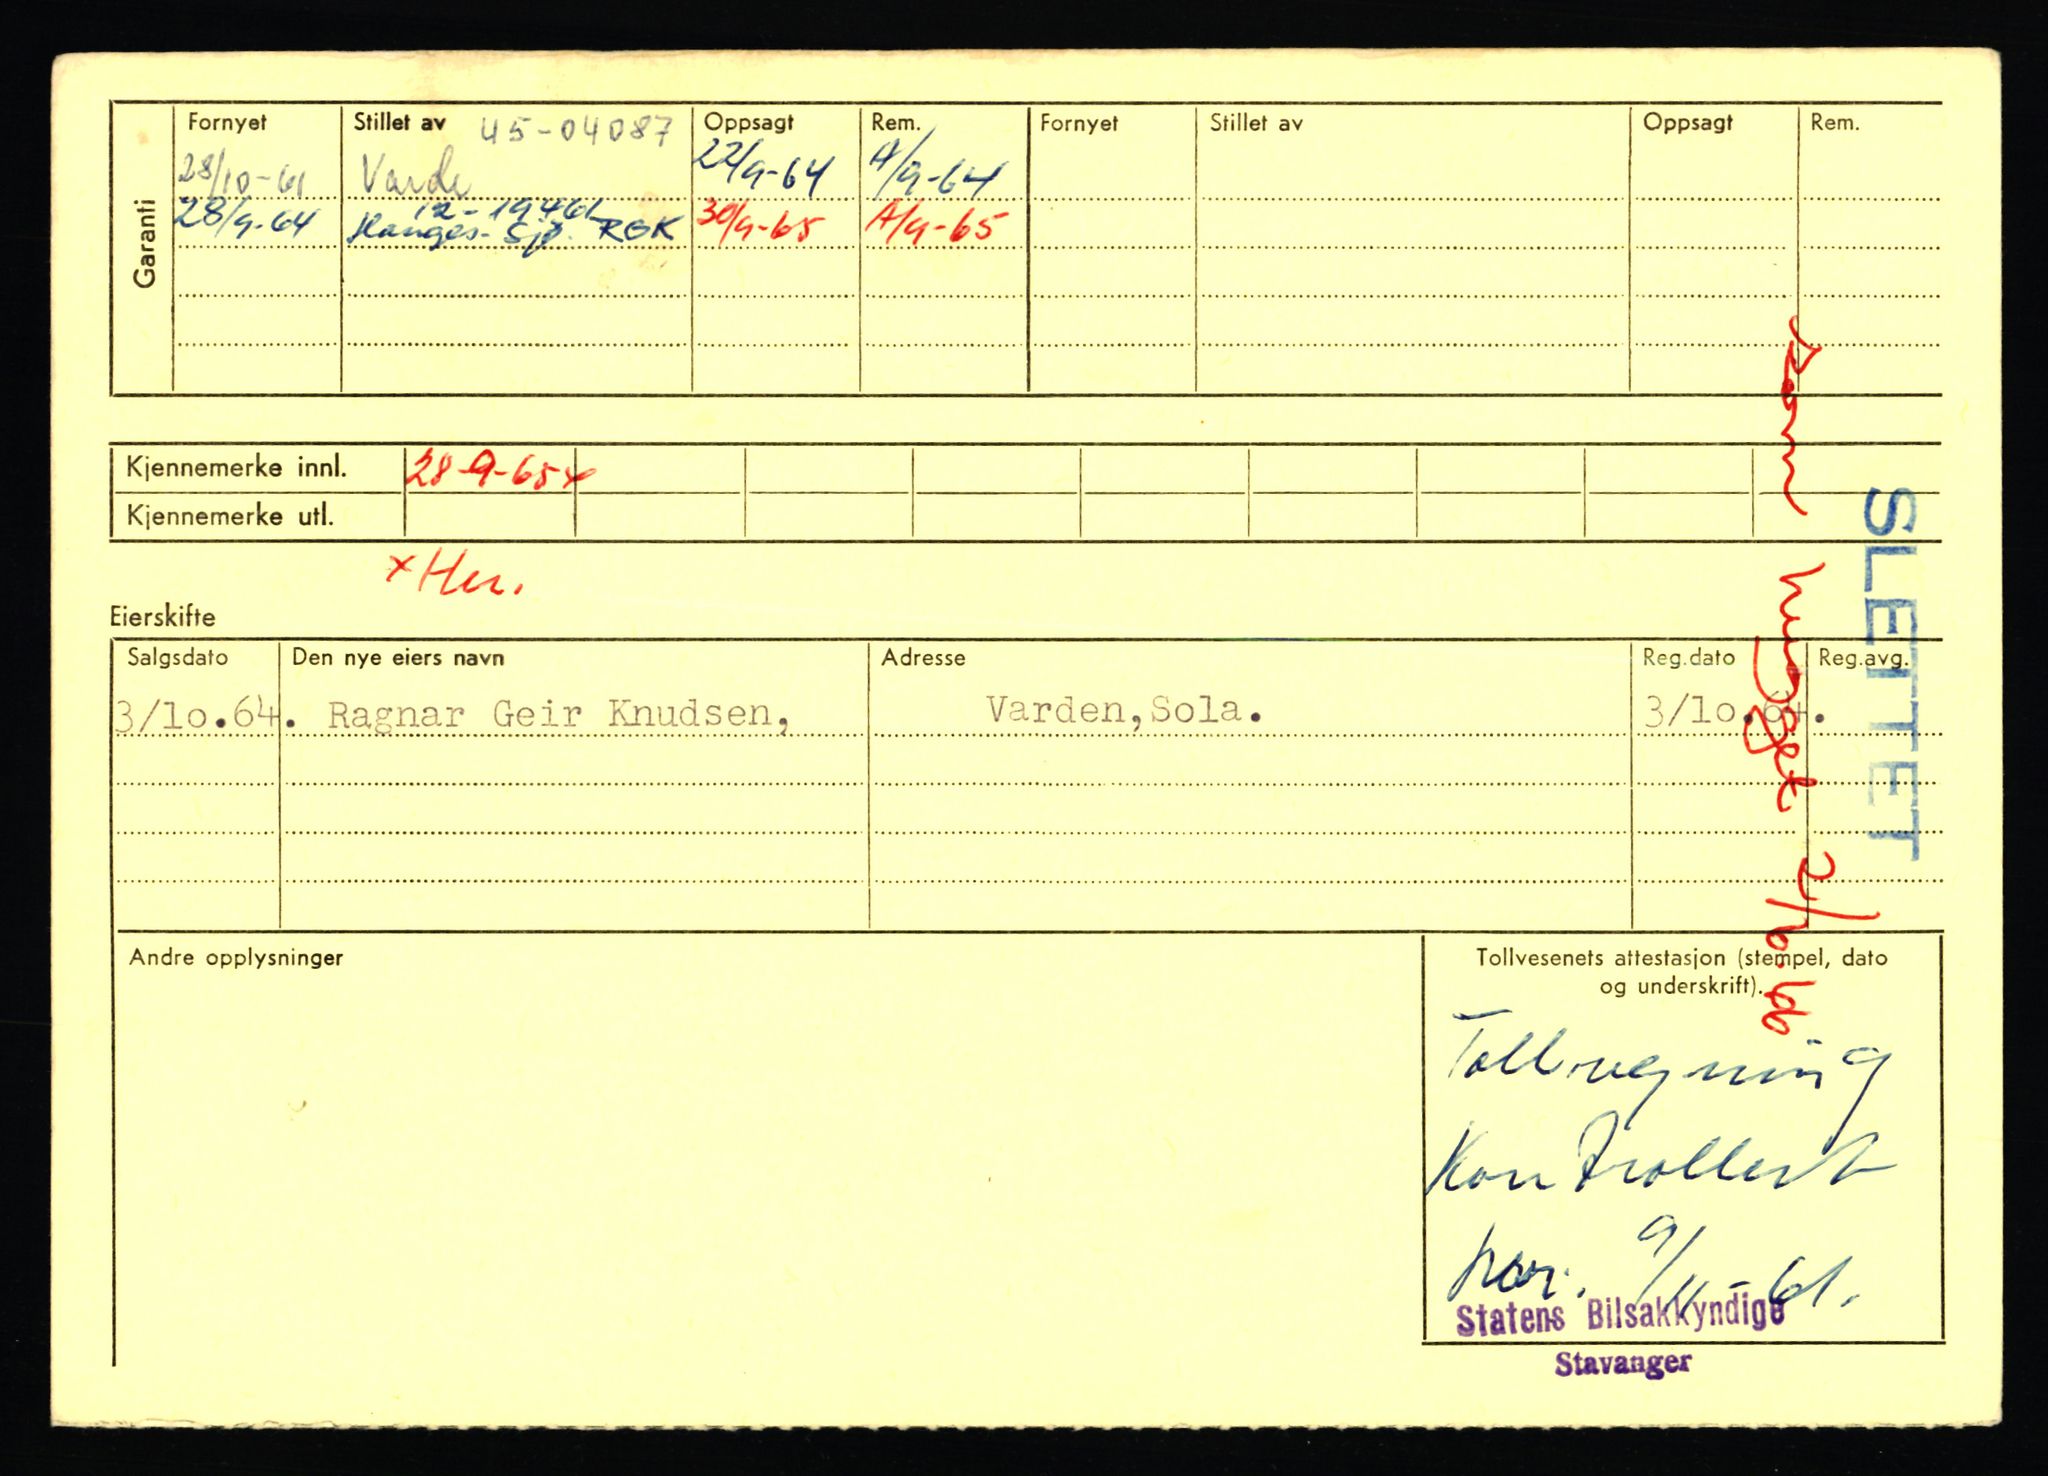 Garanti
Fornyet Stillet av 45-04087 Oppsagt Rem. Fornyet Stillet av Oppsagt Rem.
28/10-61 Varde 22/9-64 A/9-64
12-19461
28/9-64 Hauges. Sjø. RGK 30/9-65 A/9-65
Kjennemerke innl. 28-9-65 x
Kjennemerke utl.
x Her.
Eierskifte
Salgsdato Den nye eiers navn Adresse Reg.dato Reg.avg.
3/10.64. Ragnar Geir Knudsen, Varden, Sola. 3/10.64.
hugget 21/10.66
SLETTET
Andre opplysninger
Tollvesenets attestasjon (stempel, dato
og underskrift).
Tollregning
Kontrollert
9/11-61.
Statens Bilsakkyndige
Stavanger